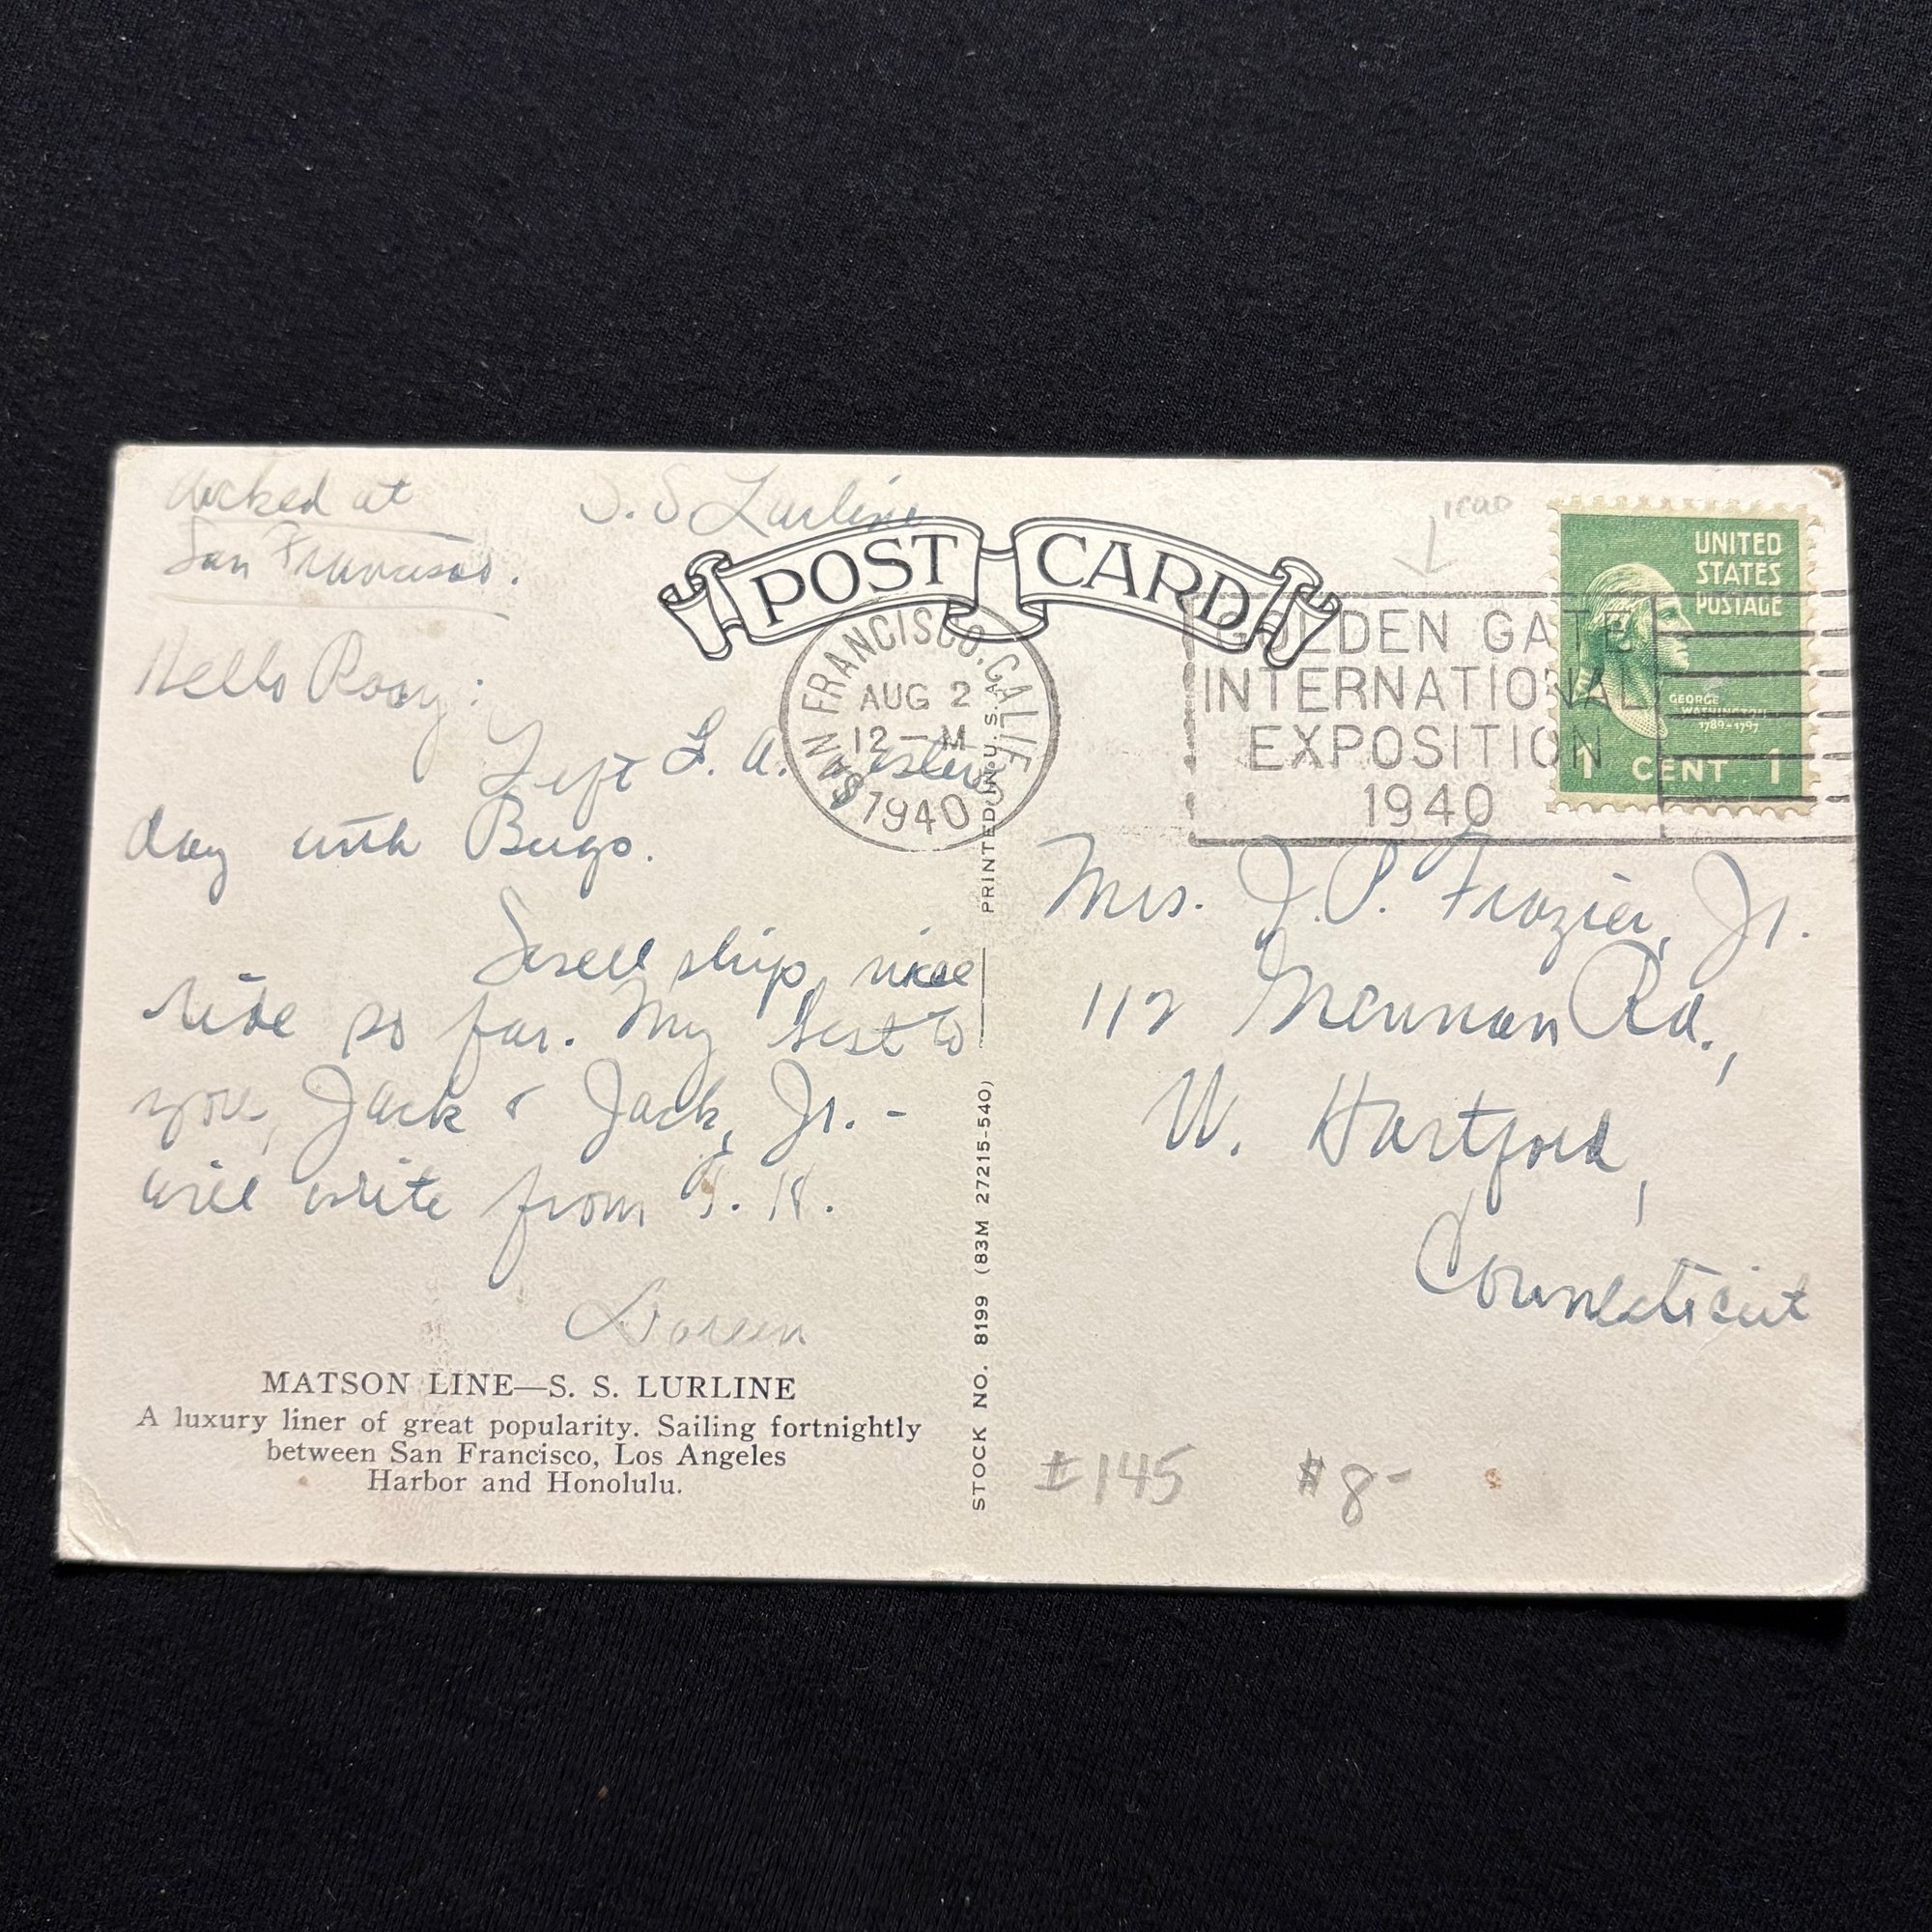 docked at
San Francisco.
S.S Lurline
POST CARD
SAN FRANCISCO, CALIF.
AUG 2
12 — M
1940
GOLDEN GATE
INTERNATIONAL
EXPOSITION
1940
read
UNITED
STATES
POSTAGE
GEORGE
WASHINGTON
1789-1797
1 CENT 1
Hello Roxy:
Left L.A. yester
day with Bugs.
Swell ship, nice
ride so far. My best to
you, Jack & Jack, Jr. -
will write from T. H.
Doreen
MATSON LINE—S. S. LURLINE
A luxury liner of great popularity. Sailing fortnightly
between San Francisco, Los Angeles
Harbor and Honolulu.
STOCK NO. 8199 (83M 27215-540)
PRINTED IN U. S. A.
Mrs. J. P. Frazier, Jr.
112 Rd.,
W. Hartford,
Connecticut
#145 $8-